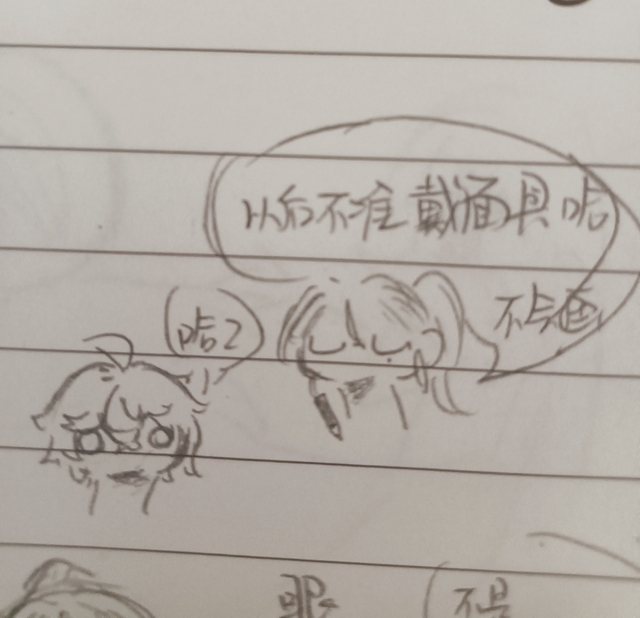 以后不准戴面具哈
不与画
哈?
眼
不是